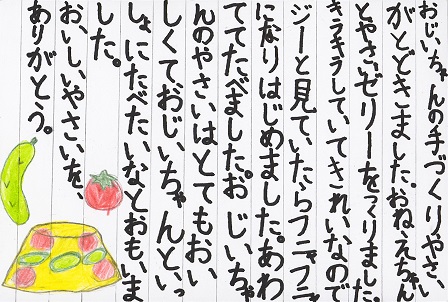 おじいちゃんの手づくりやさい
がとどきました。おねえちゃん
とやさいゼリーをつくりました。
キラキラしていてきれいなので
ジーと見ていたらフニャフニャ
になりはじめました。あわ
ててたべました。おじいちゃ
んのやさいはとてもおい
しくて、おじいちゃんといっ
しょにたべたいなとおもいま
した。
おいしいやさいを、
ありがとう。